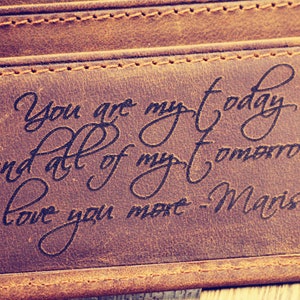 You are my today
nd all of my tomorro
love you more -Maris